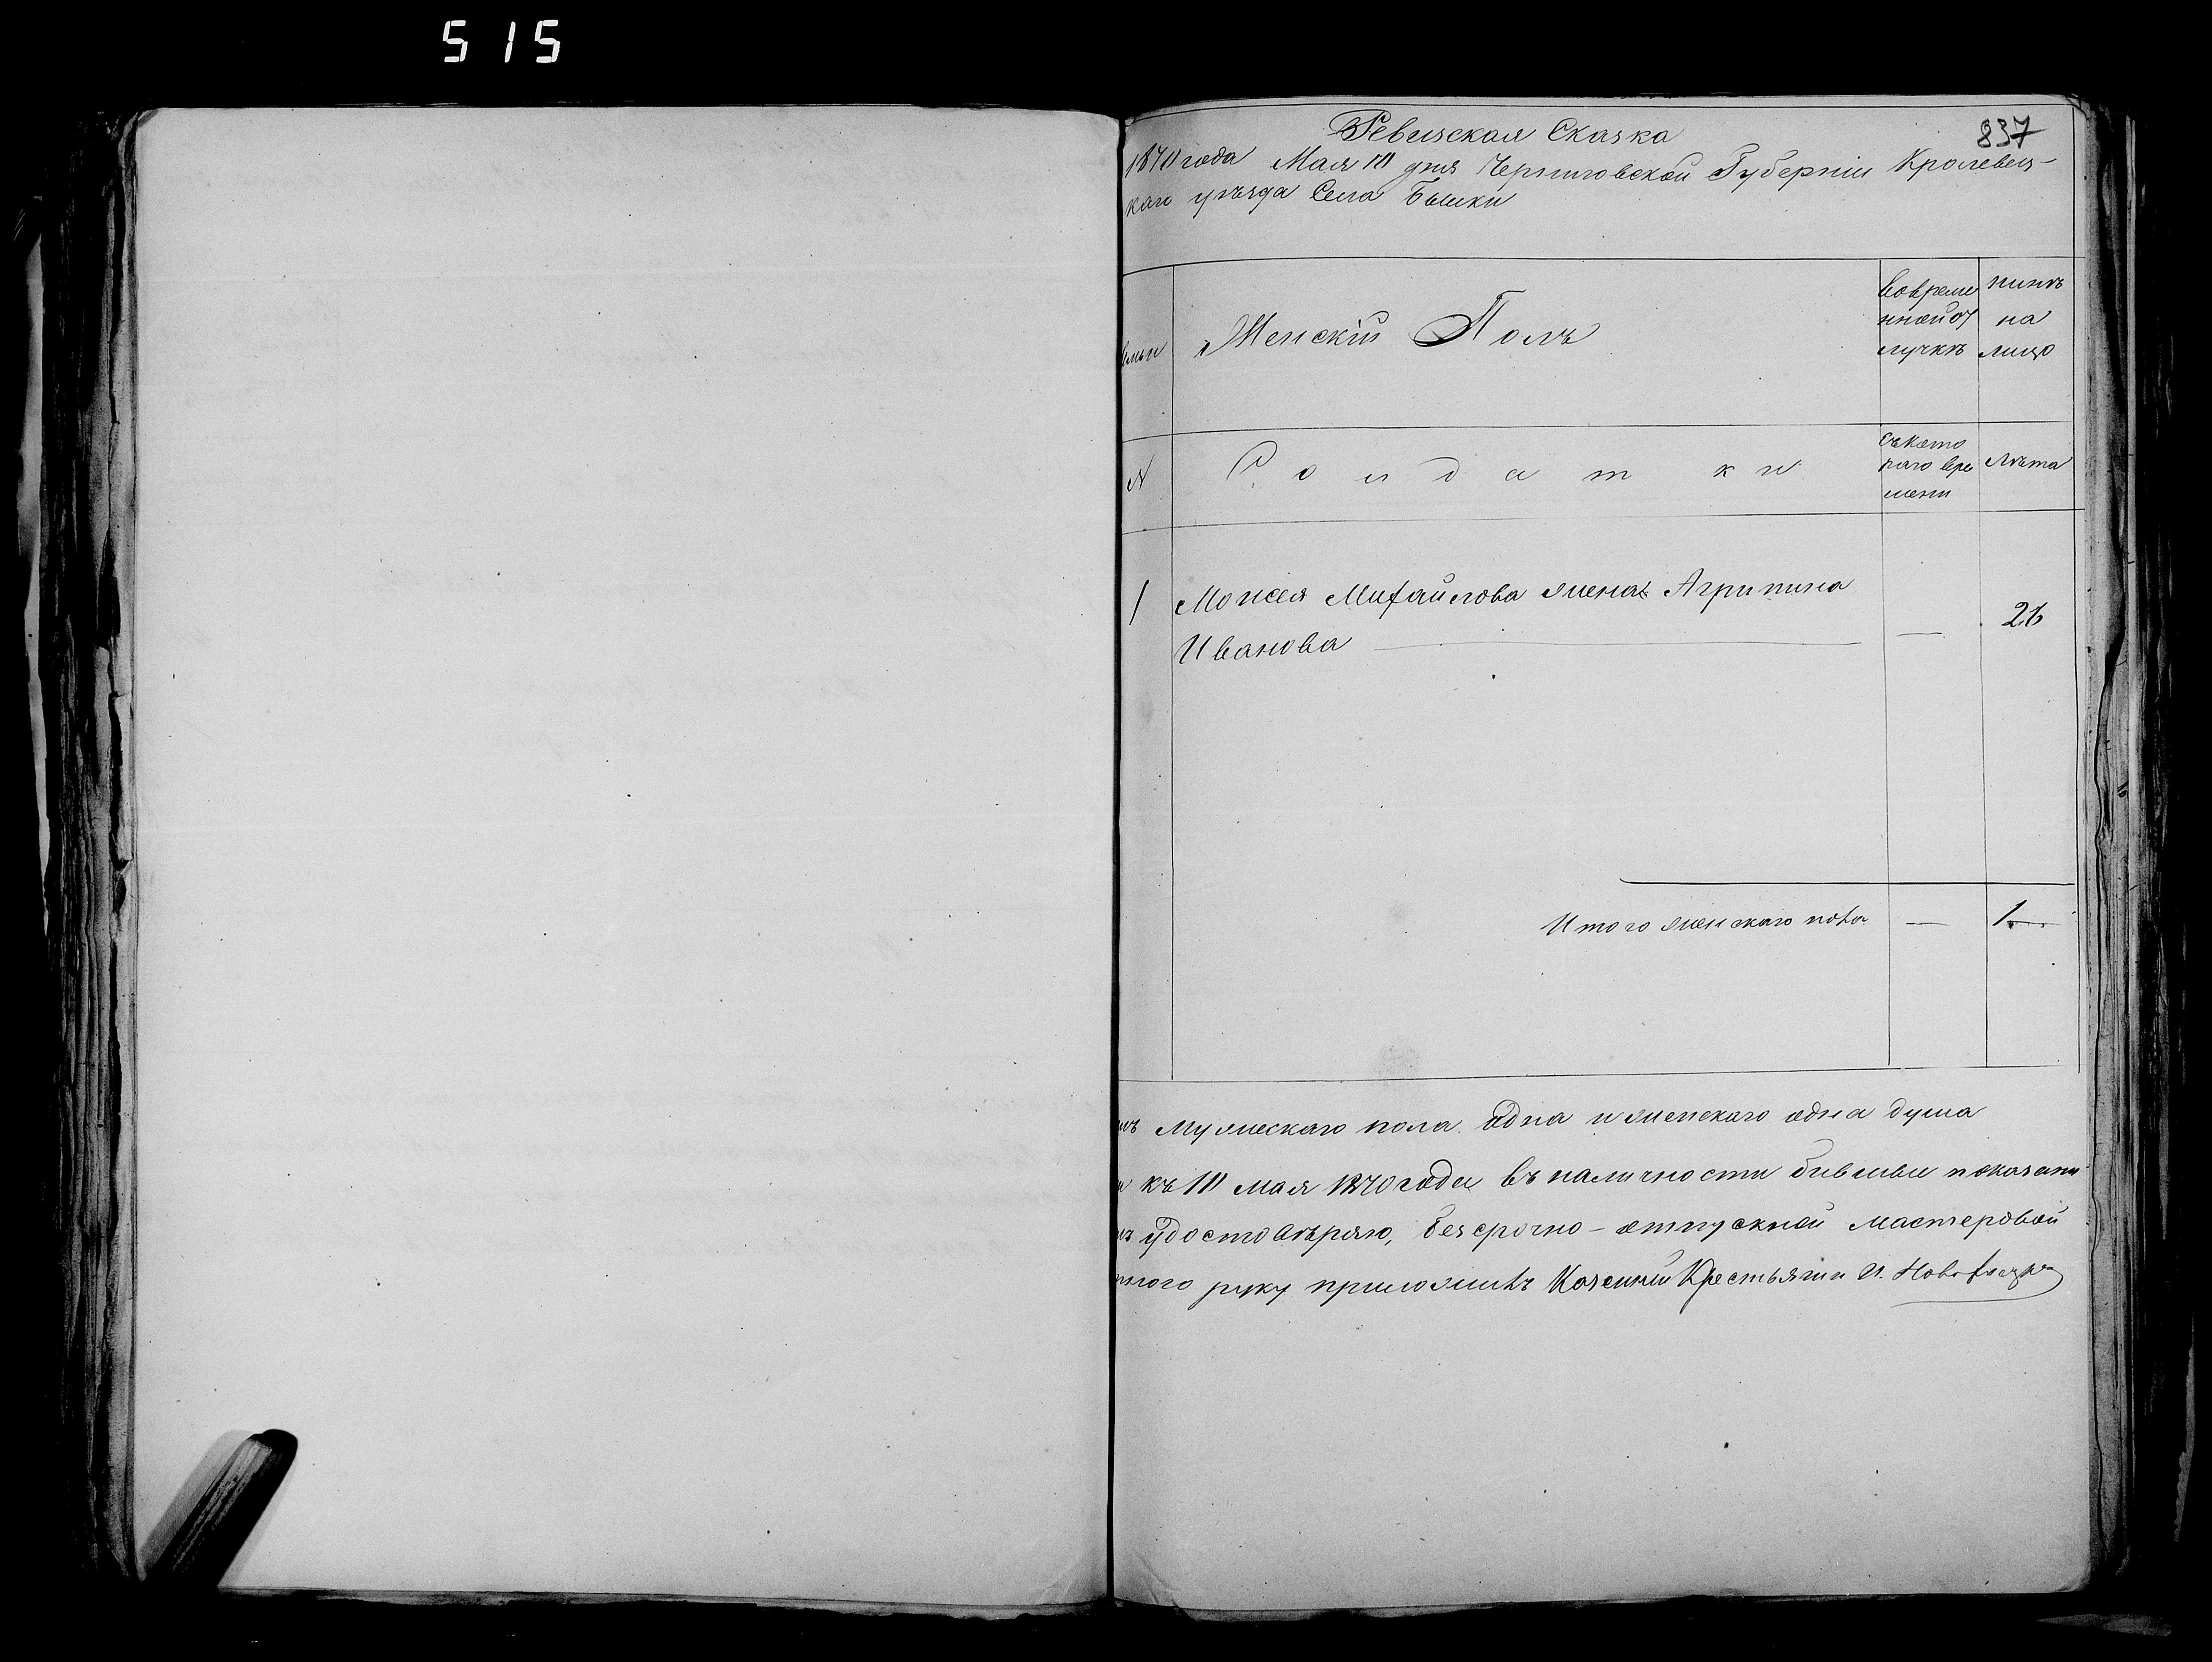 515
837
Ревизская Сказка
1870 года Мая 10 дня Черниговской Губерніи Кролевец-
каго уѣзда Села Бышки
Женскій Полъ
вовреме
нной от
лучкѣ
нынѣ
на
лицо
N
Солдатки
съ кото
раго вре
мени
Лѣта
1 Моисея Михайлова жена Агрипина
Иванова — — 26
Итого женскаго пола — 1
Мужескаго пола одна и женскаго одна душа
къ 10 мая 1870 года въ наличности бывшы показаны
удостовѣряю, безсрочно-отпускной мастеровой
руку приложилъ Казенный Крестьянин И.